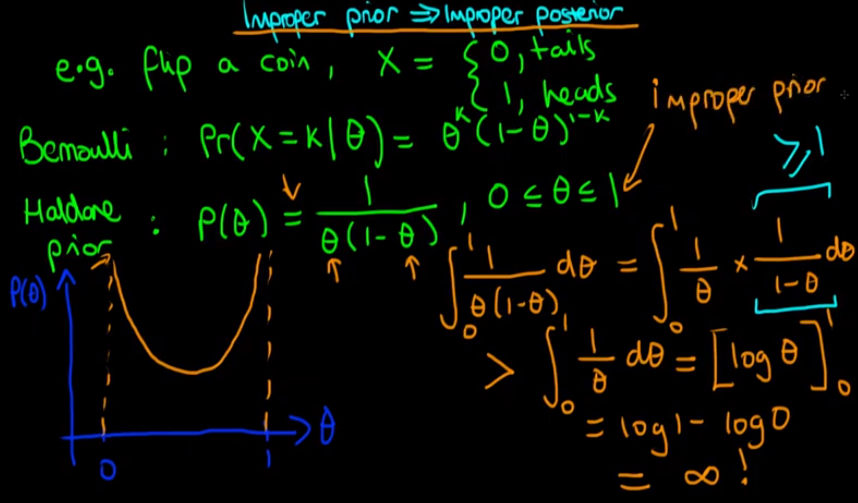 Improper prior ⇒ Improper posterior
e.g. flip a coin, X = { 0, tails
{ 1, heads
improper prior
Bernoulli : Pr(X=k|θ) = θ^k (1-θ)^{1-k}
⩾1
Haldane prior : P(θ) = 1 / θ(1-θ) , 0 ≤ θ ≤ 1
∫_0^1 1/θ(1-θ) dθ = ∫_0^1 1/θ × 1/1-θ dθ
> ∫_0^1 1/θ dθ = [log θ]_0^1
= log1 - log0
= ∞ !
P(θ)
θ
0 1